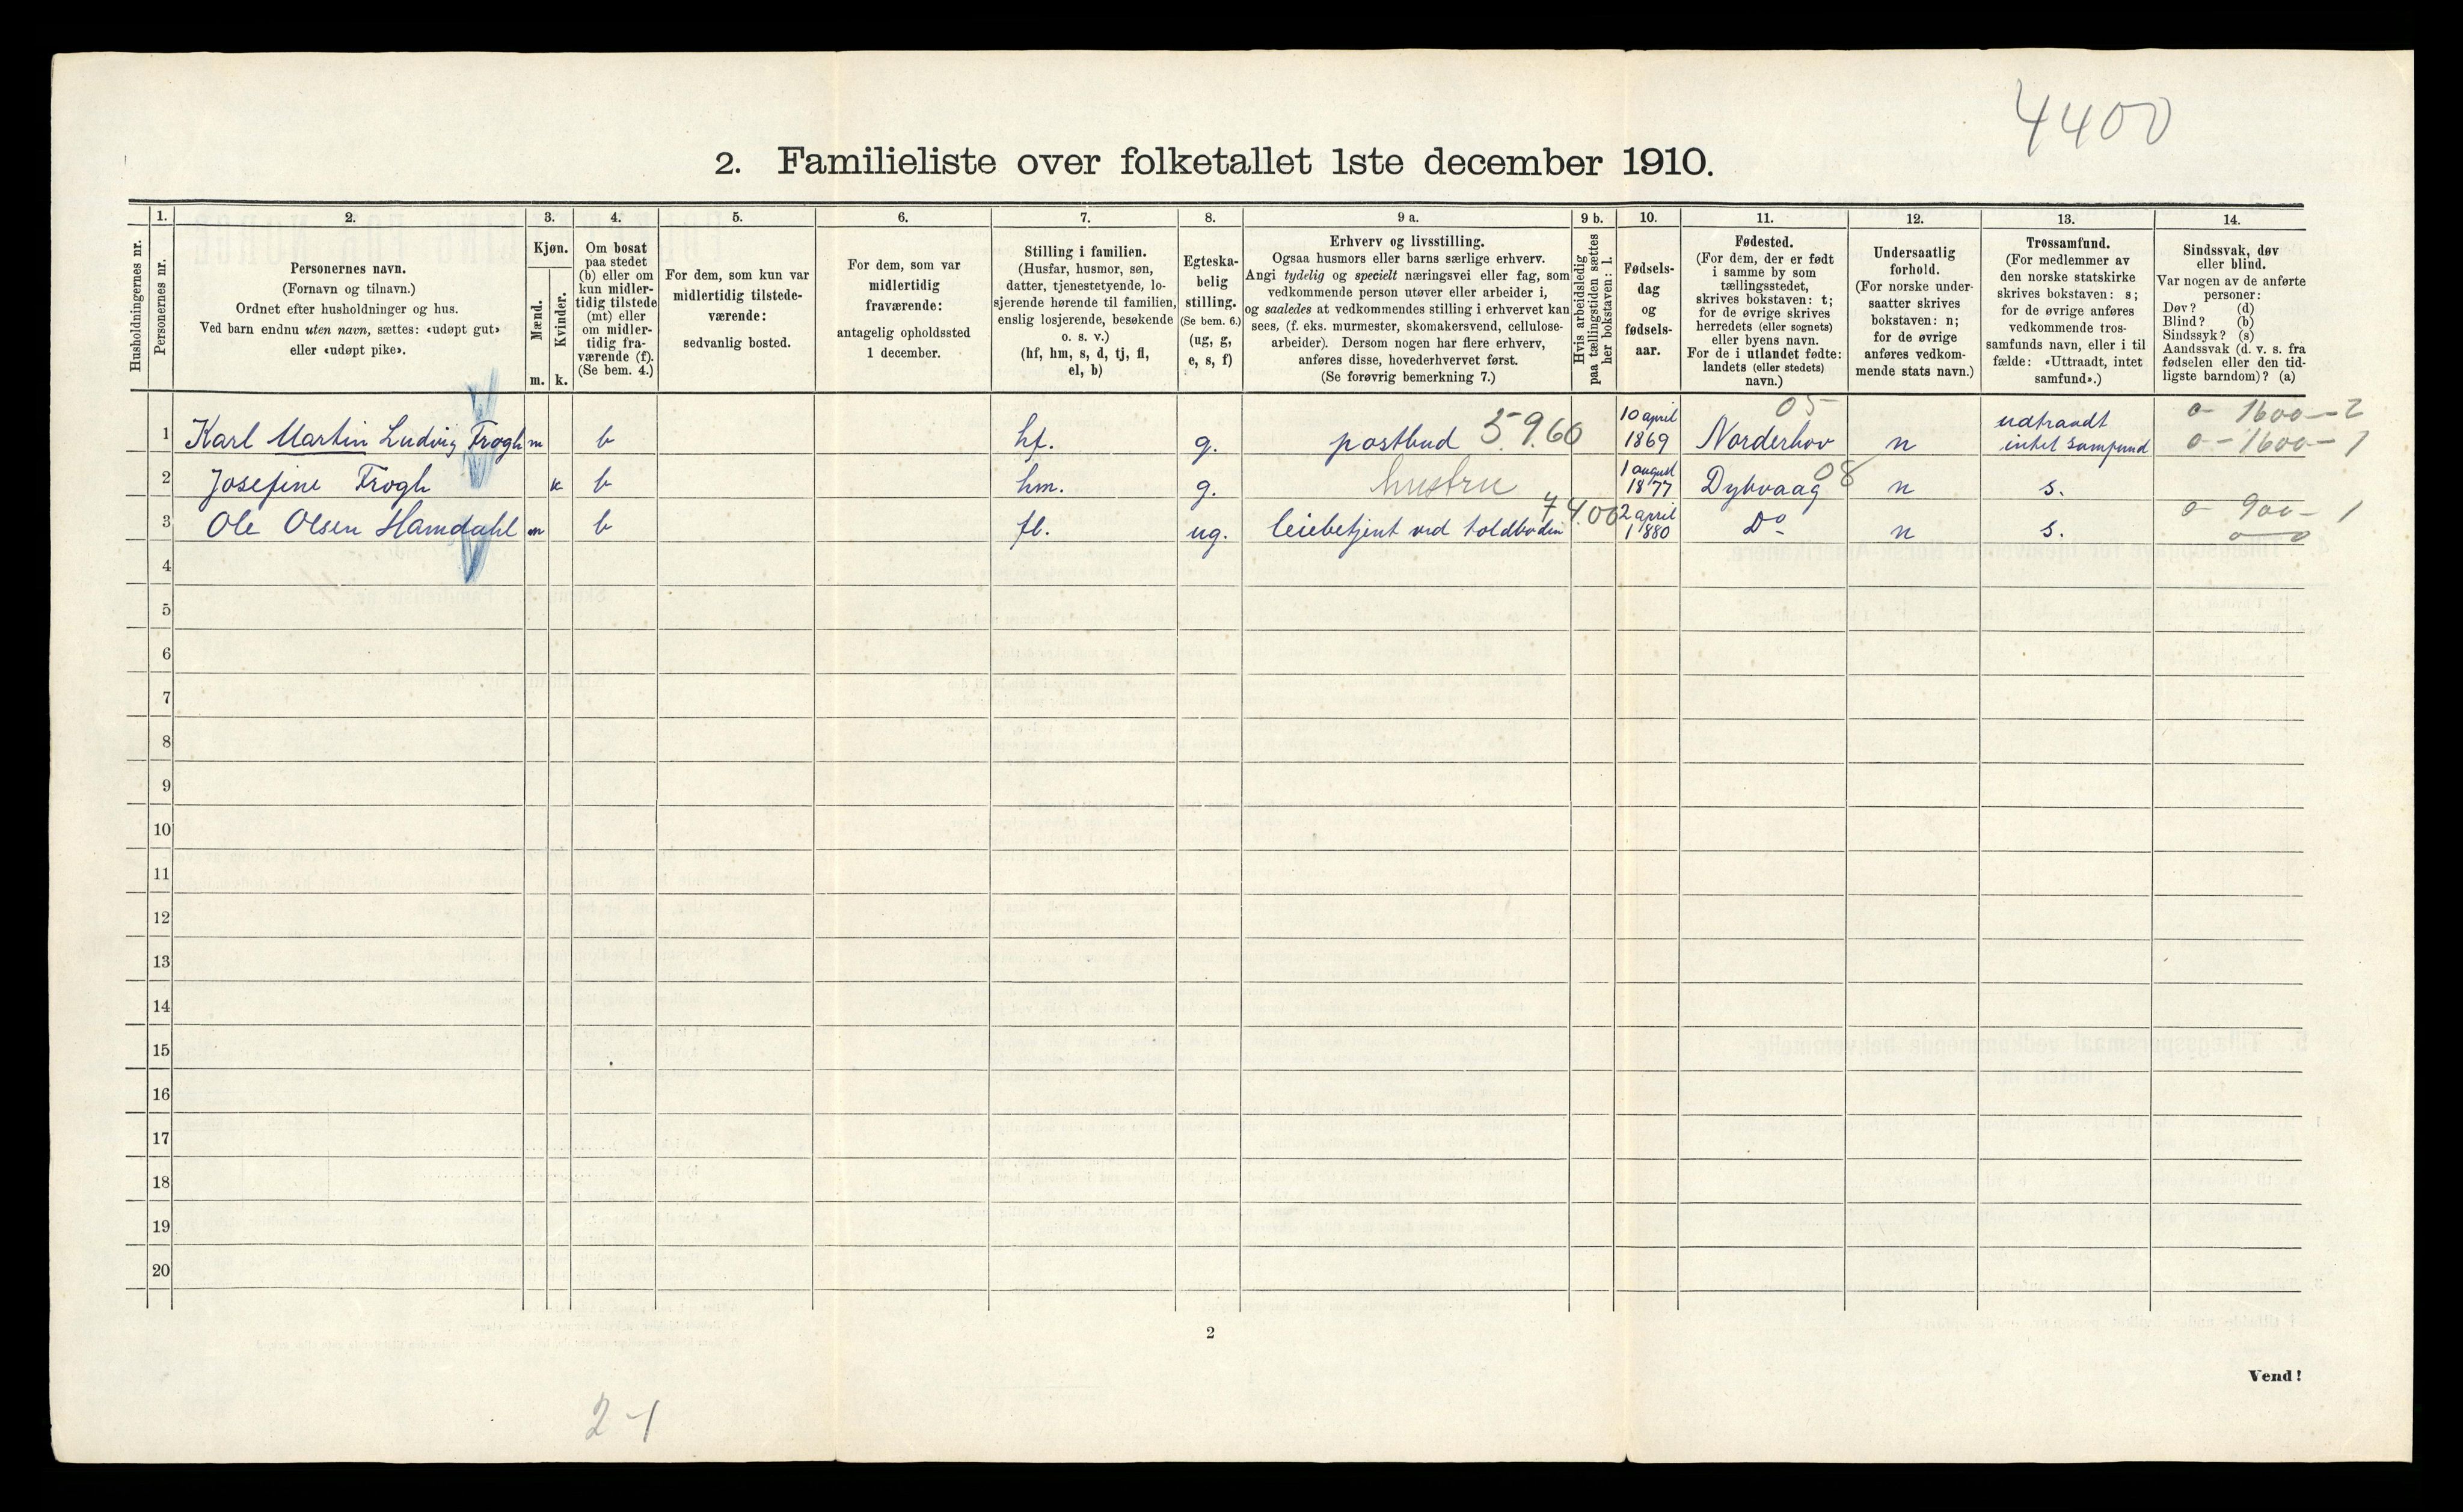 4400
2. Familieliste over folketallet 1ste december 1910.
Husholdningernes nr.
1.
Personernes nr.
2.
Personernes navn.
(Fornavn og tilnavn.)
Ordnet efter husholdninger og hus.
Ved barn endnu uten navn, sættes: «udøpt gut»
eller «udøpt pike».
3.
Kjøn.
Mænd.
Kvinder.
m.
k.
4.
Om bosat
paa stedet
(b) eller om
kun midler-
tidig tilstede
(mt) eller
om midler-
tidig fra-
værende (f).
(Se bem. 4.)
5.
For dem, som kun var
midlertidig tilstede-
værende:
sedvanlig bosted.
6.
For dem, som var
midlertidig
fraværende:
antagelig opholdssted
1 december.
7.
Stilling i familien.
(Husfar, husmor, søn,
datter, tjenestetyende, lo-
sjerende hørende til familien,
enslig losjerende, besøkende
o. s. v.)
(hf, hm, s, d, tj, fl,
el, b)
8.
Egteska-
belig
stilling.
(Se bem. 6.)
(ug, g,
e, s, f)
9 a.
Erhverv og livsstilling.
Ogsaa husmors eller barns særlige erhverv.
Angi tydelig og specielt næringsvei eller fag, som
vedkommende person utøver eller arbeider i,
og saaledes at vedkommendes stilling i erhvervet kan
sees, (f. eks. murmester, skomakersvend, cellulose-
arbeider). Dersom nogen har flere erhverv,
anføres disse, hovederhvervet først.
(Se forøvrig bemerkning 7.)
9 b.
Hvis arbeidsledig
paa tællingstiden sættes
her bokstaven: l.
10.
Fødsels-
dag
og
fødsels-
aar.
11.
Fødested.
(For dem, der er født
i samme by som
tællingsstedet,
skrives bokstaven: t;
for de øvrige skrives
herredets (eller sognets)
eller byens navn.
For de i utlandet fødte:
landets (eller stedets)
navn.)
12.
Undersaatlig
forhold.
(For norske under-
saatter skrives
bokstaven: n;
for de øvrige
anføres vedkom-
mende stats navn.)
13.
Trossamfund.
(For medlemmer av
den norske statskirke
skrives bokstaven: s;
for de øvrige anføres
vedkommende tros-
samfunds navn, eller i til
fælde: «Uttraadt, intet
samfund».)
14.
Sindssvak, døv
eller blind.
Var nogen av de anførte
personer:
Døv? (d)
Blind? (b)
Sindssyk? (s)
Aandssvak (d. v. s. fra
fødselen eller den tid-
ligste barndom)? (a)
1 Karl Martin Ludvig Frogh m b hf. g. postbud 5960 10 april 1869 05 Norderhov n udtraadt intet samfund 0-1600-2
0-1600-1
2 Josefine Frogh k b hm. g. hustru 1 august 1877 Dybvaag 08 n s.
3 Ole Olsen Hamdahl m b fl. ug. leiebetjent ved toldboden 4400 2 april 1880 Do n s. 0-900-1
0-0
4
5
6
7
8
9
10
11
12
13
14
15
16
17
18
19
20
2
Vend!
2-1